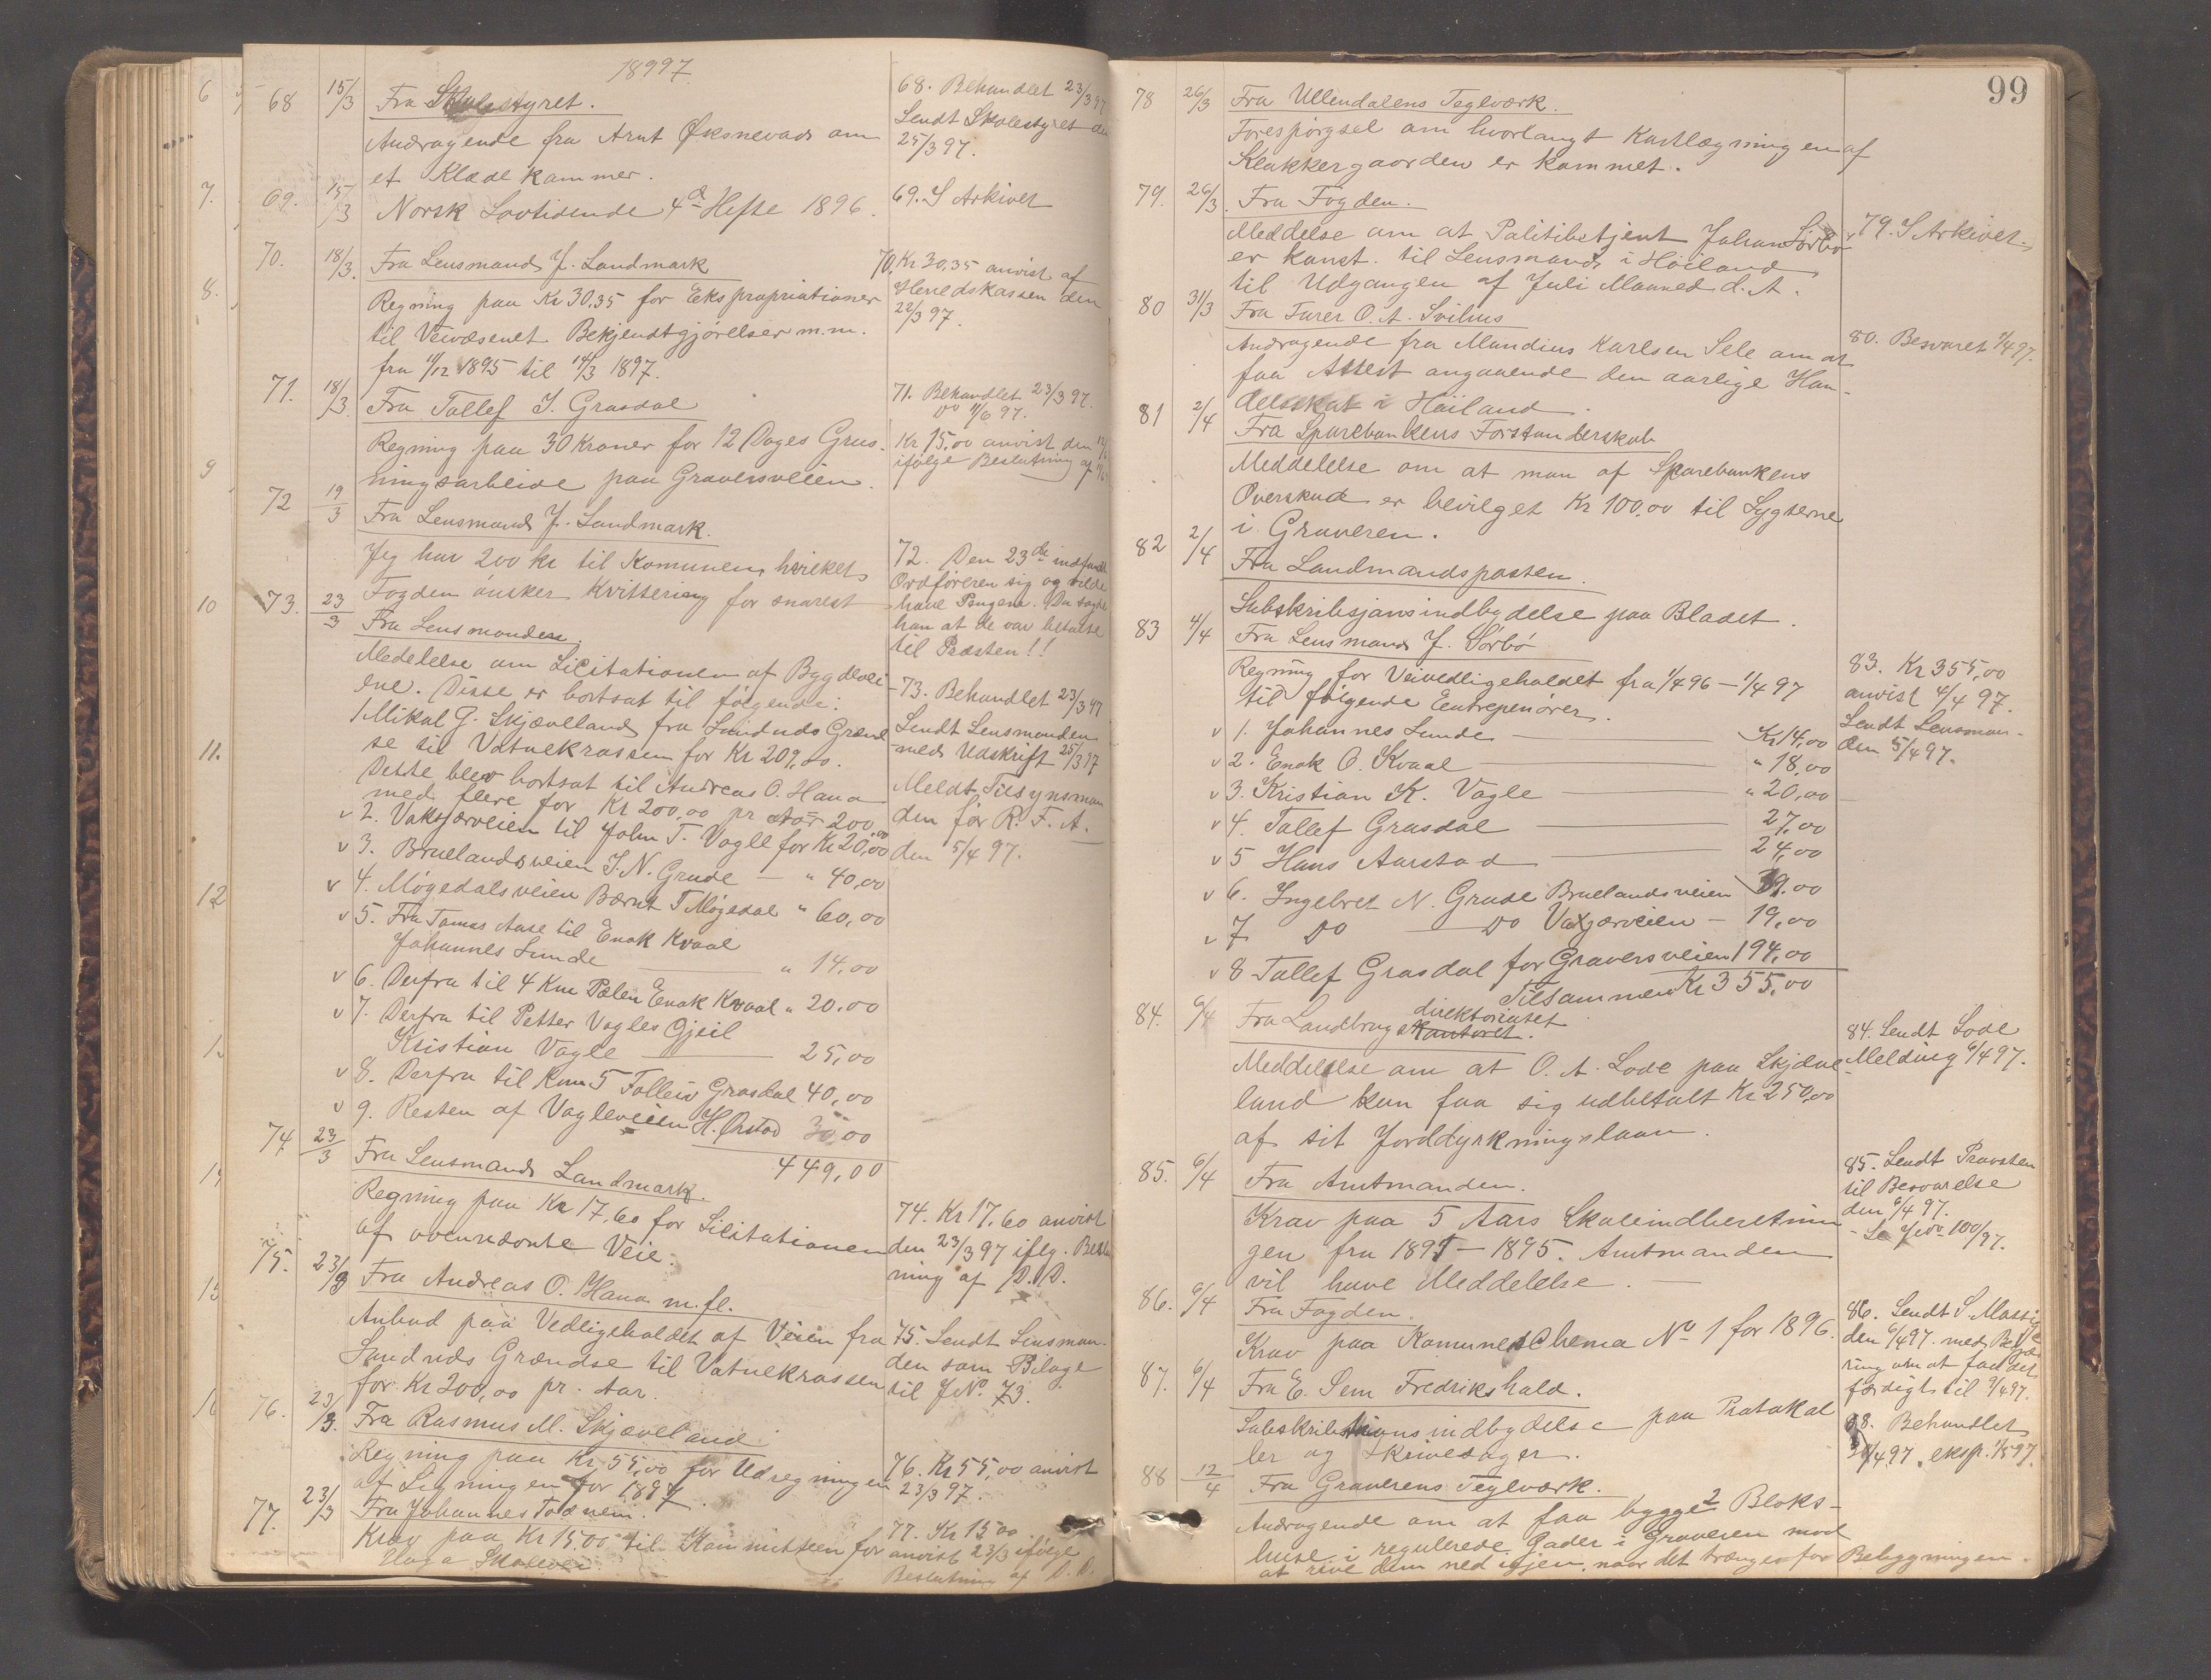 18997
68 15/3 Fra Skolestyret.
Andragende fra Arnt Øksnevad om
et Klædekammer.
68. Behandlet 23/3 97
Sendt Skolestyret den
25/3 97.
69. 15/3 Norsk Lovtidende 4de Hefte 1896.
69. I Arkivet
70. 18/3. Fra Lensmand J. Landmark
Regning paa Kr 30,35 for Ekspropriationer
til Veivæsenet Bekjendtgjørelser m.m.
fra 11/12 1895 til 14/3 1897.
70. Kr 30,35 anvist af
Herredskassen den
22/3 97.
71. 18/3. Fra Tollef I. Grasdal
Regning paa 30 Kroner for 12 Dages Grus-
ningsarbeide paa Graversveien.
71. Behandlet 23/3 97.
Do 11/6 97.
Kr 15,00 anvist den
ifølge Beslutning af
72 19/3 Fra Lensmand J. Landmark.
Jeg har 200 kr til Komunen, hvilket
Fogden ønsker Kvittering for snarest
72. Den 23de indfandt
Ordføreren sig og vilde
have Pengene. Da sagde
han at de var betalte
til Præsten!!
73. 23/3 Fra Lensmanden.
Medelelse om Licitationen af Bygdevei
ene. Disse er bortsat til følgende:
1. Mikal G. Skjævelland fra Sandnds Grænd
se til Vatnekrossen for Kr 209,00.
Dette blev bortsat til Andreas O. Hana
med flere for Kr 200,00 pr Aar 200,00
v 2. Vaksjærveien til John T. Vagle for Kr 20,00
v 3. Bruelandsveien I. N. Grude — " 40,00
v 4. Møgedalsveien Bærnt T Møgedal " 60,00
v 5. Fra Tomas Aase til Enok Kvaal
Johannes Lunde — " 14,00
v 6. Derfra til 4 Km Pælen Enok Kvaal " 20,00
v 7. Derfra til Petter Vagles Gjeil
Kristian Vagle — 25,00
v 8. Derfra til Km 5 Tolleiv Grasdal 40,00
v 9. Resten af Vagleveien H. Ørstad 30,00
449,00
73. Behandlet 23/3 97
Sendt Lensmanden
med Udskrift 25/3 97
Meldt Tilsynsman
den for R. F. A.
den 5/4 97.
74 23/3 Fra Lensmand Landmark.
Regning paa Kr 17,60 for Licitationen
af ovennævnte Veie.
74. Kr 17,60 anvist
den 23/3 97 iflg. Beslu
ning af D.D.
75. 23/3 Fra Andreas O. Hana m.fl.
Anbud paa Vedligeholdet af Veien fra
Sandnds Grændse til Vatnekrossen
for Kr 200,00 pr. Aar.
75. Sendt Lensman-
den som Bilage
til JNo. 73.
76. 23/3. Fra Rasmus M. Skjæveland
Regning paa Kr 55,00 for Udregningen
af Ligningen for 1897.
76. Kr 55,00 anvist
23/3 97.
77. 23/3 Fra Johannes Todnem.
Krav paa Kr 15,00 til Kommitteen for
Hana Skolevei.
77. Kr 15,00
anvist 23/3 ifølge
Beslutning af D. D.
99
78 26/3 Fra Ullendalens Teglværk.
Forespørgsel om hvorlangt Kartlægningen af
Klakkergaarden er kommet.
79. 26/3. Fra Fogden.
Meddelse om at Politibetjent Johan Sørbø
er konst. til Lensmand i Høiland
til Udgangen af Juli Maaned d. A.
79. I Arkivet.
80 31/3 Fra Furer O. A. Svihus
Andragende fra Mandius Karlsen Sele om at
faa Attest angaaende den aarlige Han-
delsskat i Høiland.
80. Besvaret 1/4 97.
81 2/4 Fra Sparebankens Forstanderskab
Meddelelse om at man af Sparebankens
Overskud er bevilget Kr 100,00 til Lygterne
i Graveren.
82 2/4 Fra Landmandsposten.
Subskribsjonsindbydelse paa Bladet.
83 4/4 Fra Lensmand J. Sørbø
Regning for Veivedligeholdet fra 1/4 96 — 1/4 97
til følgende Eentrepenører.
v 1. Johannes Lunde — Kr 14,00
v 2. Enok O. Kvaal — " 18,00
v 3. Kristian K. Vagle — " 20,00
v 4. Tollef Grasdal — 27,00
v 5 Hans Aarstad — 24,00
v 6. Ingebret N. Grude Bruelandsveien 39.00
v 7 Do — Do Vaxjærveien — 19,00
v 8 Tollef Grasdal for Graversveien 194,00
Tilsammen Kr 355,00
83. Kr 355,00
anvist 4/4 97.
Sendt Lensman-
den 5/4 97.
84. 6/4 Fra Landbrugskontoret.
direktoriatet
Meddelelse om at O. A. Lode paa Skjæve-
land kan faa sig udbetalt Kr 250,00
af sit Jorddyrkningslaan.
84. Sendt Lode
Melding 6/4 97.
85. 6/4 Fra Amtmanden.
Krav paa 5 Aars Skoleindberetnin
gen fra 1891 — 1895. Amtmanden
vil have Meddelelse. —
85. Sendt Provsten
til Besvarelse
den 6/4 97.
- Se Jno 100/97.
86. 6/4 Fra Fogden.
Krav paa Komuneschema No 1 for 1896.
86. Sendt
den 6/4 97. med
ring om at faa det
færdigt til 9/4 97.
87. 6/4 Fra E. Sem Fredrikshald.
Subskribtionsindbydelse paa Protokol
ler og Skrivesager.
88 12/4 Fra Graverens Teglværk.
Andragende om at faa bygge 2 Bloks-
huse i regulerede Gader i Graveren mod
at rive dem ned igjen, naar det trænges for Bebygningen.
88. Behandlet
30/4 97, eksp. 1/5 97.